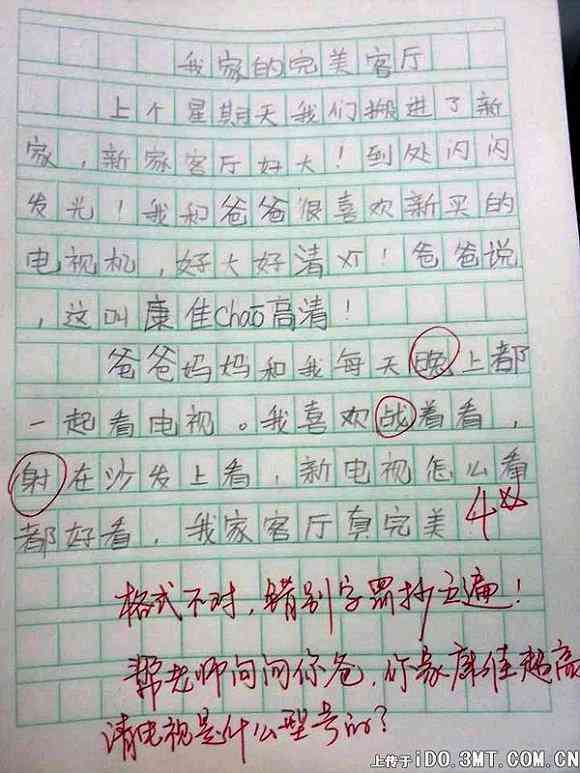 我家的完美客厅
上个星期天我们搬进了新
家，新家客厅好大！到处闪闪
发光！我和爸爸很喜欢新买的
电视机，好大好清！爸爸说
，这叫康佳Chāo高清！
爸爸妈妈和我每天晚上都
一起看电视。我喜欢战着看，
射在沙发上看，新电视怎么看
都好看，我家客厅真完美
格式不对，错别字罚抄五遍！
帮老师问问你爸，你家康佳超高
清电视是什么型号的？
上传于 iDO.3MT.COM.CN